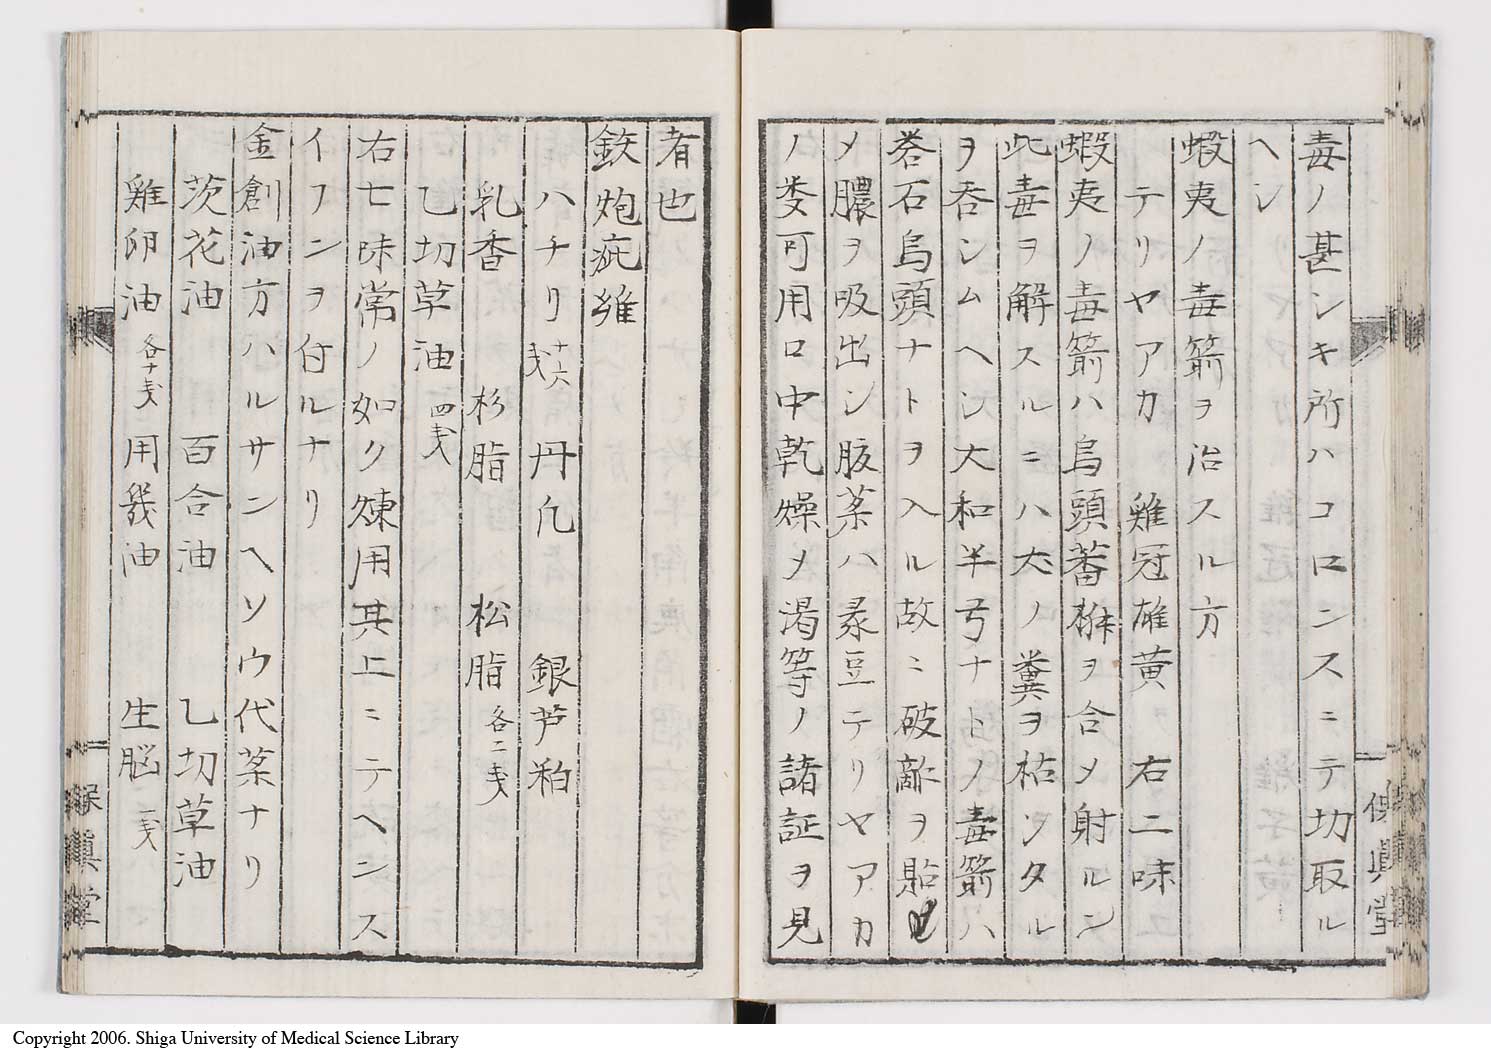 毒ノ甚シキ所ハコロンスニテ切取ル
ヘシ
蝦夷ノ毒箭ヲ治スル方
テリヤアカ 雞冠雄黄 右二味
蝦夷ノ毒箭ハ烏頭蕃椒ヲ合メ射ルシ
此毒ヲ解スルニハ犬ノ糞ヲ枯シタル
ヲ呑シムヘシ大和半弓ナトノ毒箭ハ
礜石烏頭ナトヲ入ル故ニ破敵ヲ貼
メ膿ヲ吸出シ肢薬ハ菉豆テリヤアカ
ノ类可用口中乾燥メ渇等ノ諸証ヲ見
保眞堂
者也
鉄炮疵
ハチリ十六戋 丹凡 銀芦粕
乳香 杉脂 松脂各二戋
乙切草油四戋
右七味常ノ如ク煉用其上ニテヘンス
イフンヲ付ルナリ
金創油方ハルサンヘソウ代薬ナリ
茨花油 百合油 乙切草油
雞卵油各十戋 用幾油 生脳一戋
保眞堂
Copyright 2006. Shiga University of Medical Science Library